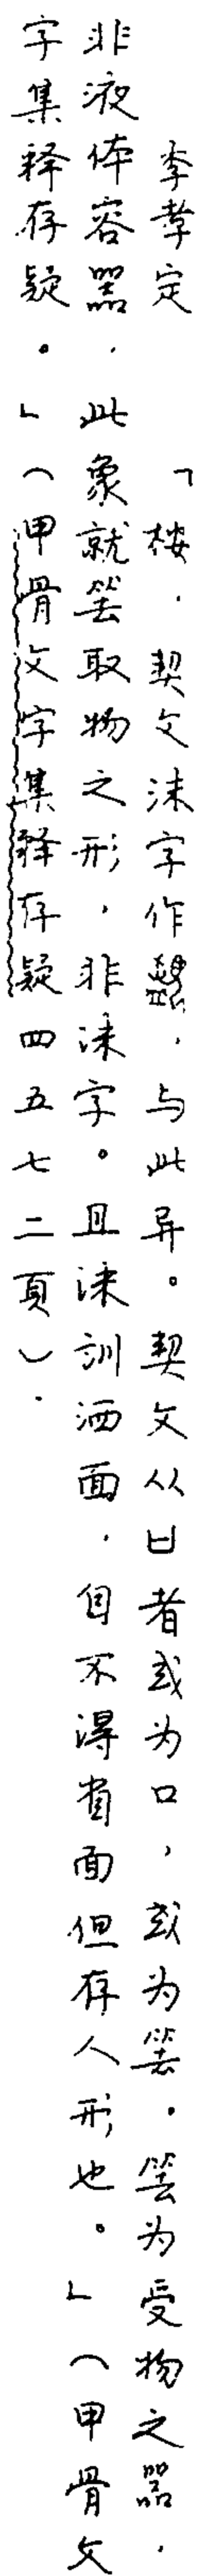 李孝定 「按，契文沬字作，与此异。契文从凵者或为口，或为筶。筶为受物之器，
非液体容器，此象就筶取物之形，非沬字。且沬训洒面，自不得省面但存人形也。」（甲骨文
字集释存疑。」（甲骨文字集释存疑四五七二頁）．